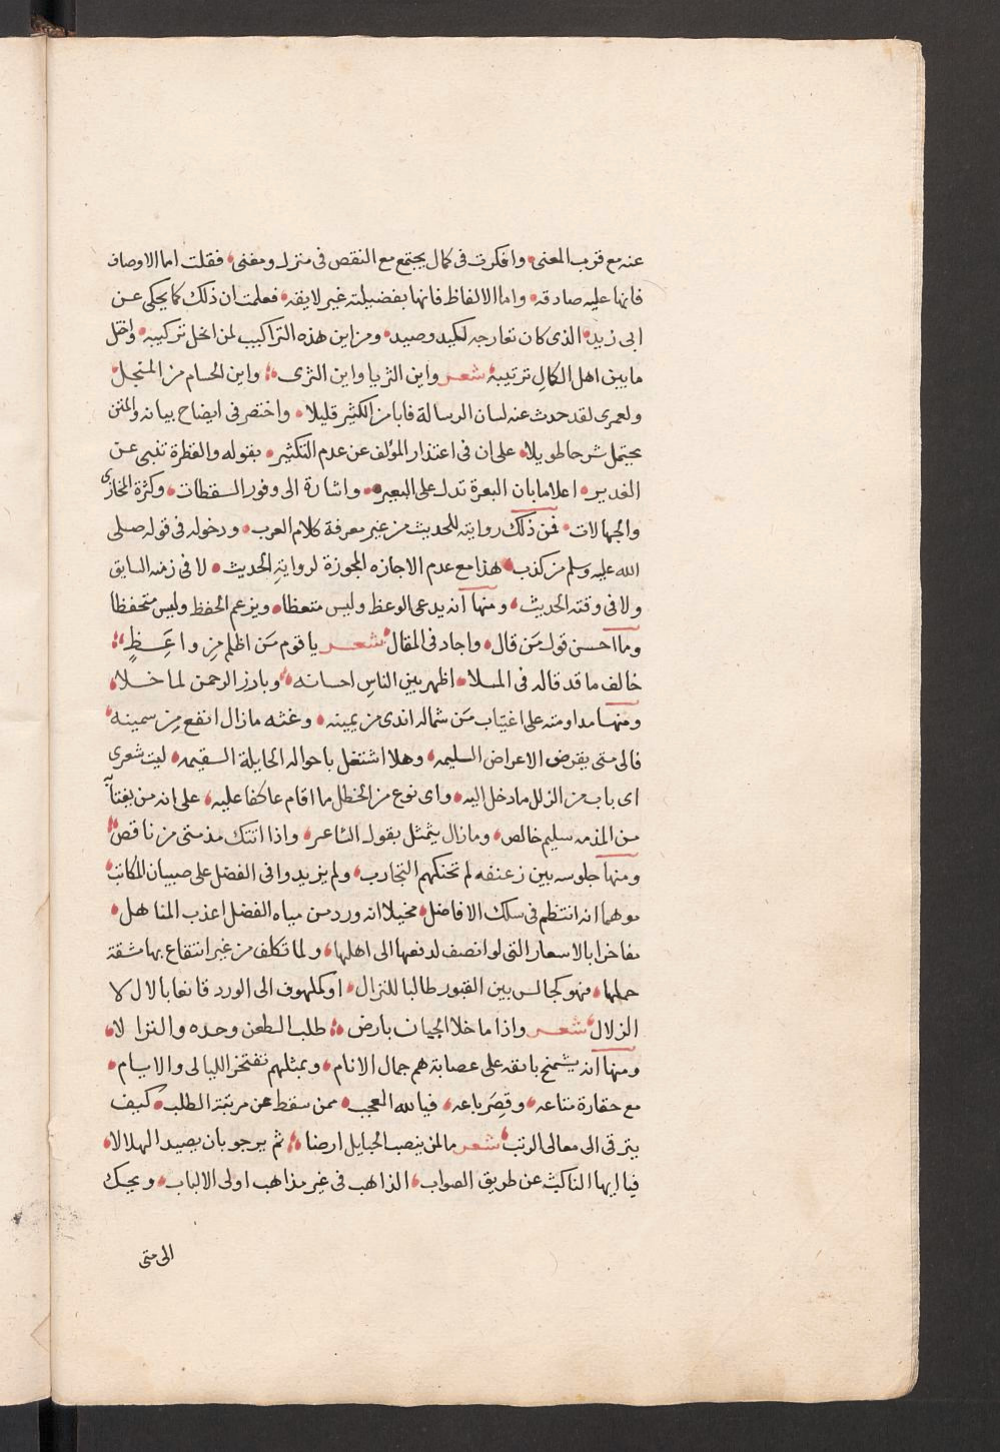 عنه مع قرب المعنى، وافكرت فى كمال يجتمع مع النقص فى منزل ومغنى، فقلت اما الاوصاف
فانها عليه صادقه، واما الالفاظ فانها بفضيلته غير لايقه، فعلمت ان ذلك كما يحكى عن
ابى زيد، الذى كان تعارجه لكيد وصيد، ومن اين هذه التراكيب لمن انخل تركيبه، واختل
ما بين اهل الكمال ترتيبة، شعر واين الثريا واين الثرى، واين الحسام من المنجل
ولعمرى لقد حدث عنه لسان الرسالة فابا من الكثير قليلا، واختصر فى ايضاح بيانه والمتن
يحتمل شرحا طويلا، على ان فى اعتذار المؤلف عن عدم التكثير، بقوله والقطرة تنبى عن
الغدير، اعلاما بان البعرة تدل على البعير، واشارة الى وفور السقطات، وكثرة المخازى
والجهالات، فمن ذلك روايته للحديث من غير معرفة كلام العرب، ودخوله فى قوله صلى
الله عليه وسلم من كذب، هذا مع عدم الاجازه المجوزة لرواية الحديث، لا فى زمنه السابق
ولا فى وقته الحديث، ومنها انه يدعى الوعظ وليس متعظا، ويزعم الحفظ وليس متحفظا
وما احسن قول من قال، واجاد فى المقال، شعر يا قوم مَن اظلم مِن واعَظٍ،
خالف ما قد قاله فى الملا، اظهر بين الناس احسانه، وبارز الرحمن لما خلا،
ومنها مداومته على اغتياب مَن شماله اندى من يمينه، وغثه ما زال انفع مِن سمينه،
فالى متى يقرض الاعراض السليمه، وهلا اشتغل باحواله الحايلة السقيمه، ليت شعرى
اى باب من الزلل ما دخل اليه، واى نوع من الخطل ما اقام عاكفا عليه، على انه من يغتابه
من المذمه سليم خالص، وما زال يتمثل بقول الشاعر، واذا اتتك مذمتى من ناقص،
ومنها جلوسه بين زعنفه لم تحنكهم التجارب، ولم يزيدوا فى الفضل على صبيان المكاتب،
موهما انه انتظم فى سلك الافاضل، مخيلا انه ورد من مياه الفضل اعذب المناهل،
مفاخرا بالاسعار التى لو انصف لدفعها الى اهلها، ولما تكلف من غير انتقاع بها مشقة
حملها، فهو كجالس بين القبور طالبا للنزال، او كملهوف الى الورد قانعا بالال لا
الزلال، شعر واذا ما خلا الجبان بارض، طلب الطعن وحده والنزالا،
ومنها انه يشمخ بانفه على عصابة هم جمال الانام، وبمثلهم تفتخر الليالى والايام،
مع حقارة متاعه، وقصَر باعه، فيا لله العجب، ممن سقط عن مرتبة الطلب، كيف
يترقى الى معالى الرتب، شعر ما لمن ينصب الحبايل ارضا، ثم يرجو بان يصيد الهلالا،
فيا ايها الناكث عن طريق الصواب، الذاهب فى غير مذاهب اولى الالباب، ويحك
الى متى